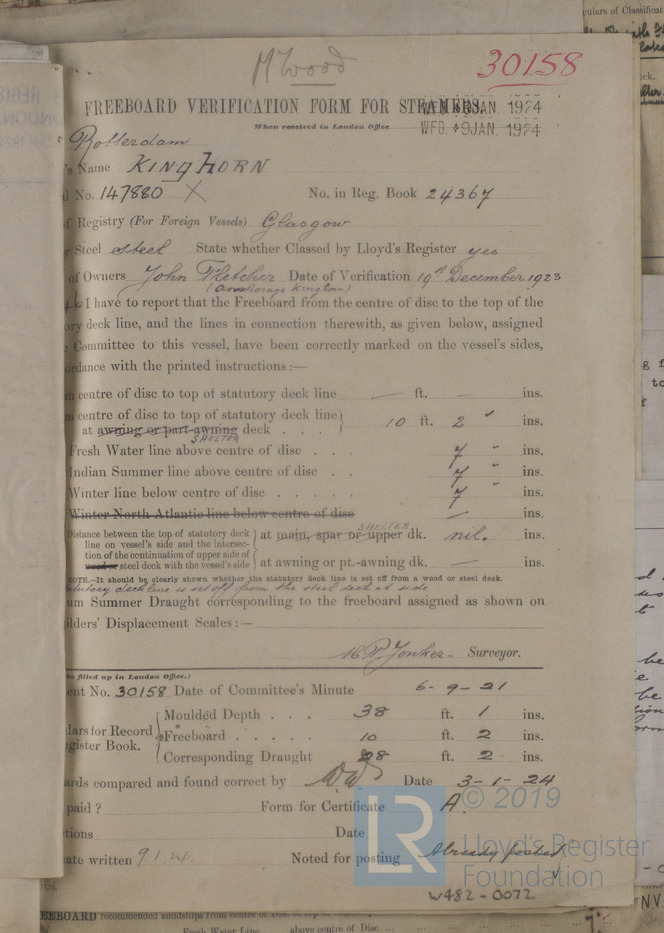 culars of Classificat
M Wood
30158
FREEBOARD VERIFICATION FORM FOR STEAMERS.
WED. 9 JAN. 1924
When received in London Office
WED. 9 JAN. 1924
Rotterdam
's Name KINGHORN
l No. 147880 X No. in Reg. Book 24367
f Registry (For Foreign Vessels) Glasgow
r Steel steel State whether Classed by Lloyd's Register yes
of Owners John Fletcher Date of Verification 19th December 1923
I have to report that the Freeboard from the centre of disc to the top of the
ory deck line, and the lines in connection therewith, as given below, assigned
e Committee to this vessel, have been correctly marked on the vessel's sides,
ordance with the printed instructions :—
m centre of disc to top of statutory deck line — ft. — ins.
m centre of disc to top of statutory deck line
at awning or part-awning deck . . . 10 ft. 2 " ins.
SHELTER
Fresh Water line above centre of disc . . . 7 " ins.
Indian Summer line above centre of disc . . 7 " ins.
Winter line below centre of disc . . . . . 7 " ins.
Winter North Atlantic line below centre of disc — ins.
Distance between the top of statutory deck
line on vessel's side and the intersec-
tion of the continuation of upper side of
wood or steel deck with the vessel's side
SHELTER
at main, spar or upper dk. nil. ins.
at awning or pt.-awning dk. — ins.
NOTE.—It should be clearly shown whether the statutory deck line is set off from a wood or steel deck.
atutory deck line is set off from the steel deck at side
um Summer Draught corresponding to the freeboard assigned as shown on
ilders' Displacement Scales :—
Jonker Surveyor.
be filled up in London Office.)
ent No. 30158 Date of Committee's Minute 6-9-21
lars for Record
gister Book.
Moulded Depth . . . 38 ft. 1 ins.
Freeboard . . . . . 10 ft. 2 ins.
Corresponding Draught 28 ft. 2 ins.
ards compared and found correct by Date 3-1-24
paid ? Form for Certificate A.
tions Date
ate written 9.1.24. Noted for posting Already posted
LR © 2019
Lloyd's Register
Foundation
W482-0072
EEBOARD recommended amidships from centre of Disc to top
Fresh Water Line above centre of Disc